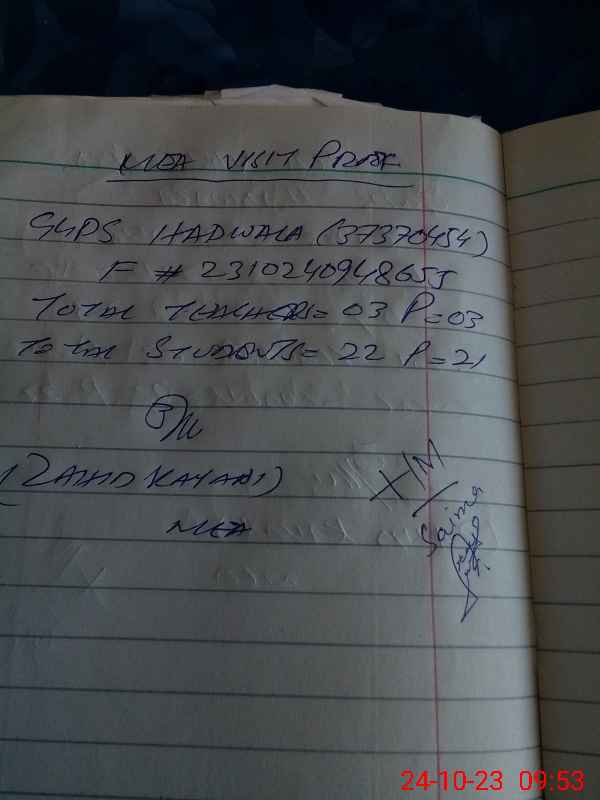 MEA VISIT PROOF
GGPS HADWALA (37370454)
F # 2310240948655
TOTAL TEACHERS = 03 P = 03
TOTAL STUDENTS = 22 P = 21
(ZAHID KAYANI)
MEA
Saima
24-10-23 09:53